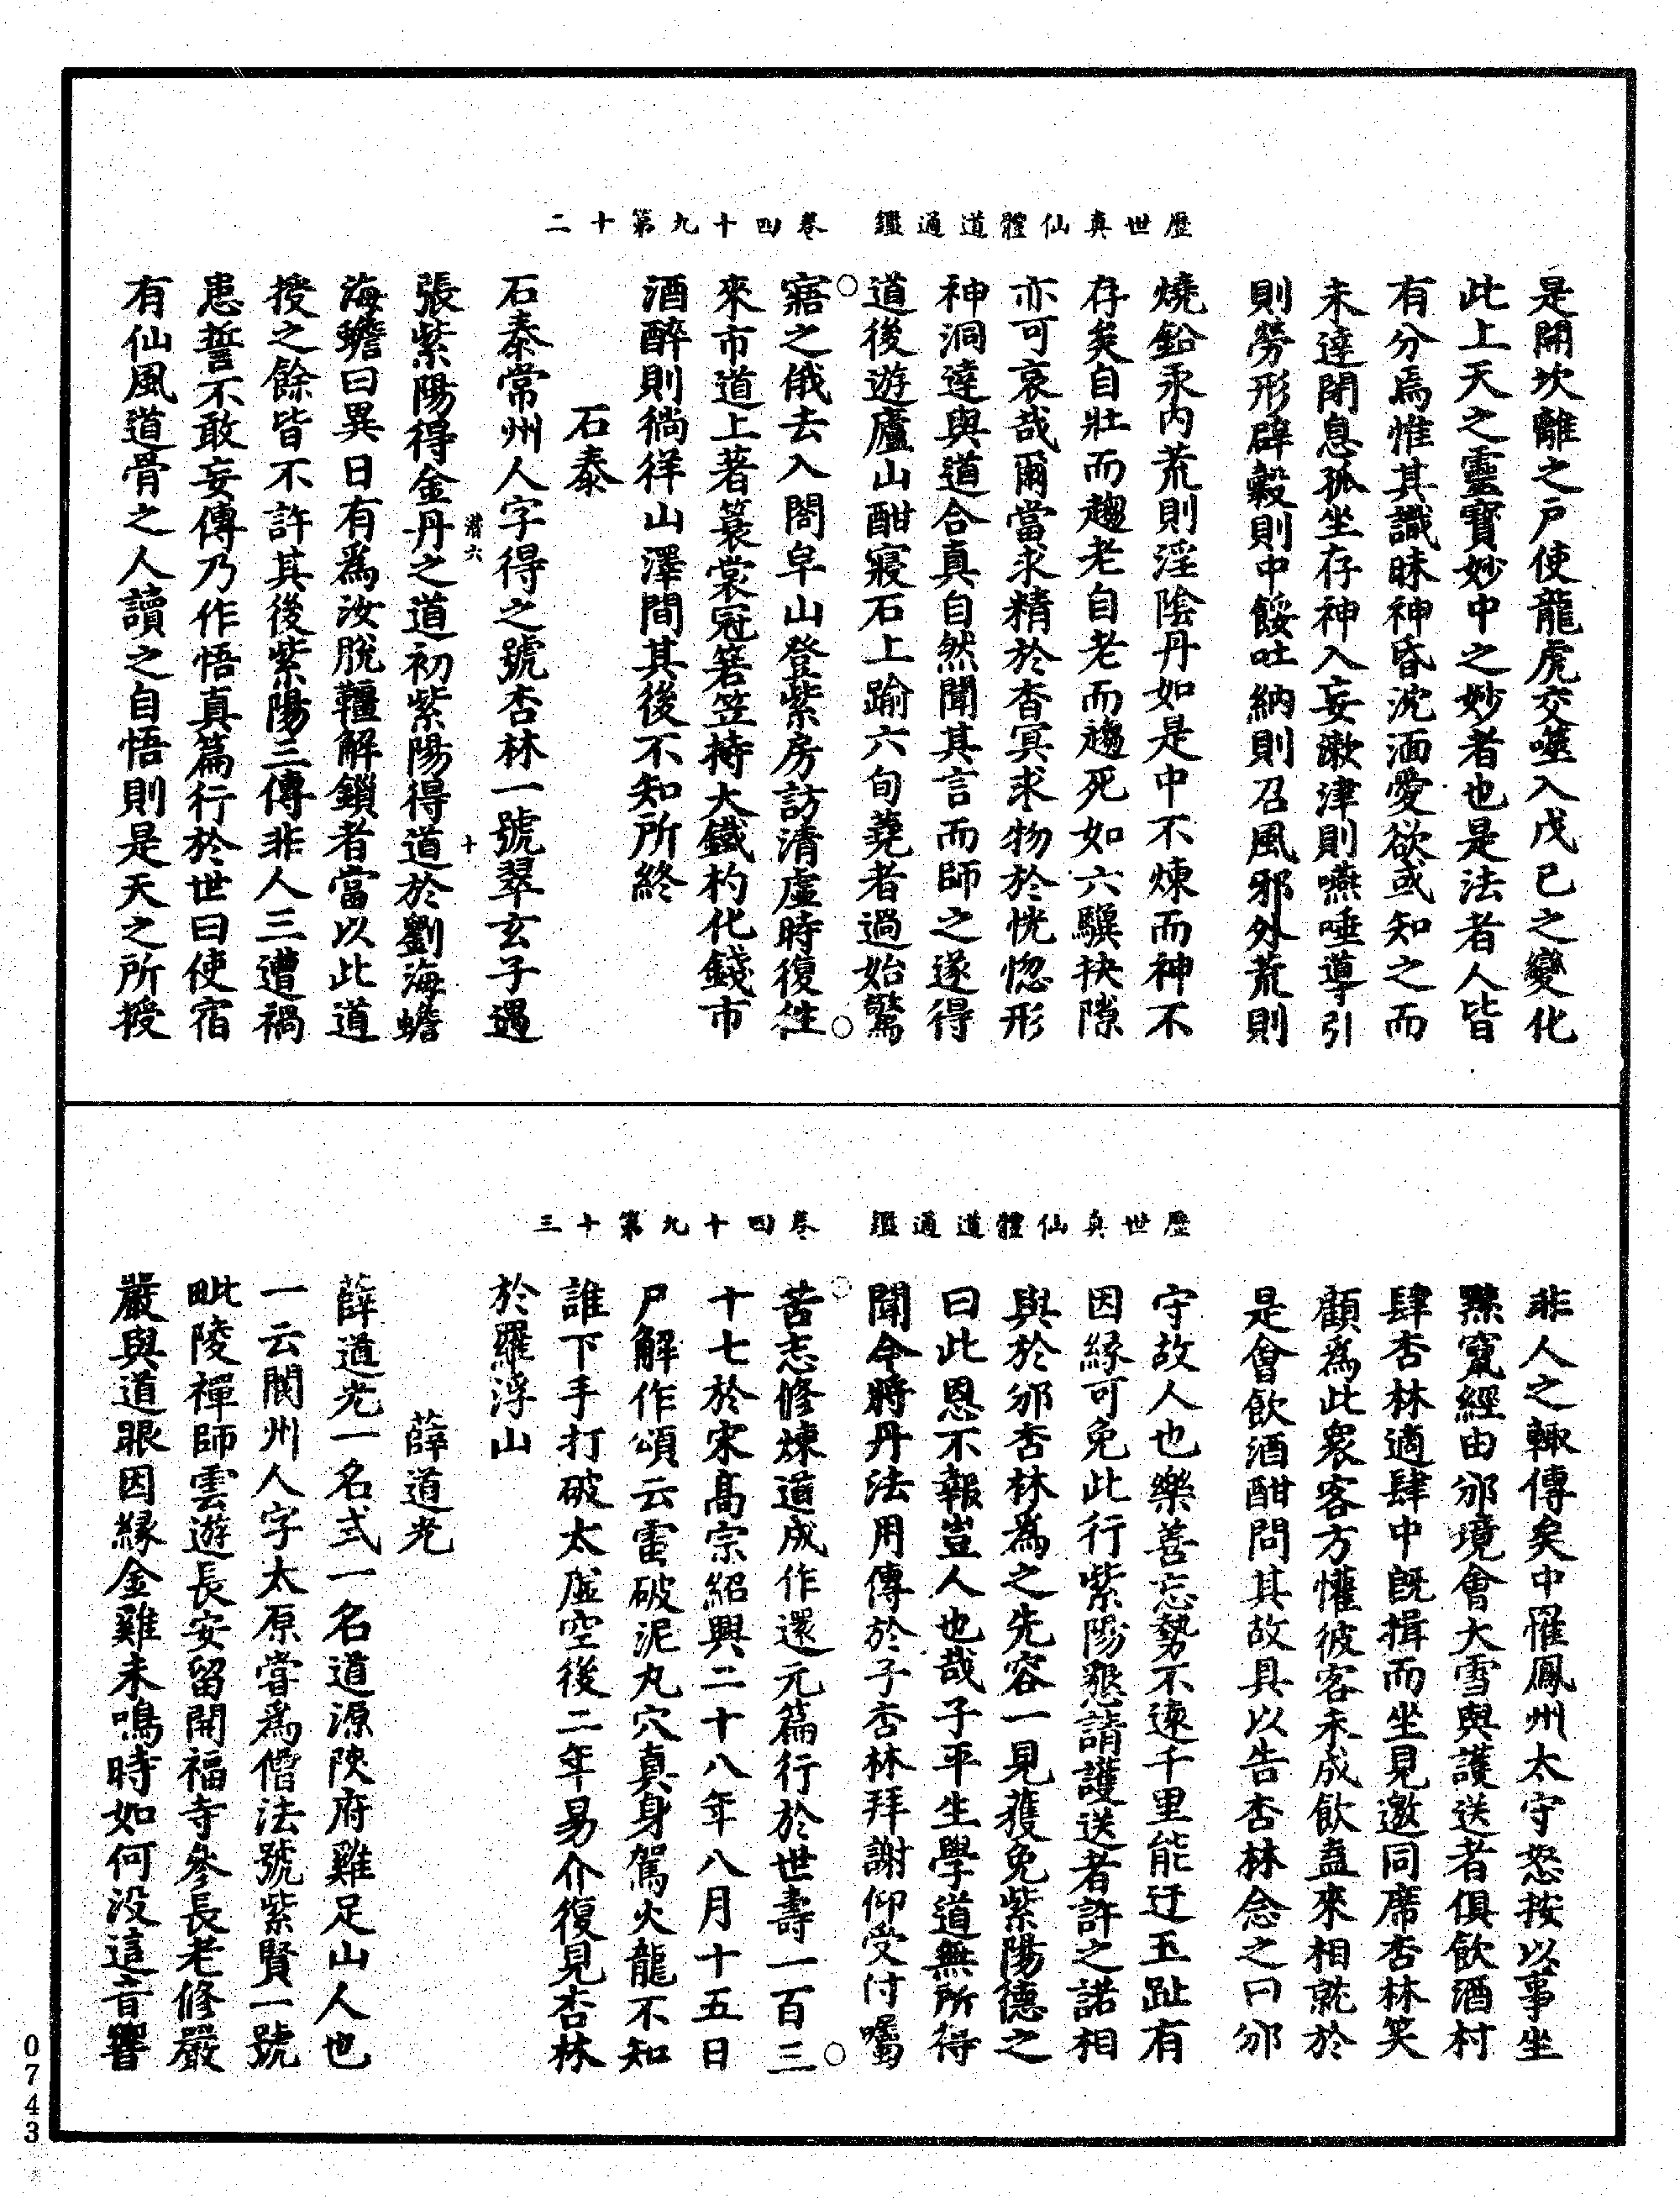 歷世真仙體道通鑑　卷四十九第十二
是開坎離之戶使龍虎交噬入戊己之變化
此上天之靈寶妙中之妙者也是法者人皆
有分焉惟其識昧神昏沈湎愛欲或知之而
未達閉息孤坐存神入妄漱津則嚥唾導引
則勞形辟穀則中餒吐納則召風邪外荒則
燒鉛汞內荒則淫陰丹如是中不煉而神不
存矣自壯而趨老自老而趨死如六驥抉隙
亦可哀哉爾當求精於杳冥求物於恍惚形
神洞達與道合真自然聞其言而師之遂得
道後遊廬山酣寢石上踰六旬蕘者過始驚
寤之俄去入閤皁山登紫房訪清虛時復往
來市道上著簑裳冠箬笠持大鐵杓化錢市
酒醉則徜徉山澤間其後不知所終
石泰
石泰常州人字得之號杏林一號翠玄子遇
六　十
張紫陽得金丹之道初紫陽得道於劉海蟾
海蟾曰異日有爲汝脫韁解鎖者當以此道
授之餘皆不許其後紫陽三傳非人三遭禍
患誓不敢妄傳乃作悟真篇行於世曰使宿
有仙風道骨之人讀之自悟則是天之所授
歷世真仙體道通鑑　卷四十九第十三
非人之輒傳矣中罹鳳州太守怒按以事坐
黥竄經由邠境會大雪與護送者俱飲酒村
肆杏林適肆中既揖而坐見邀同席杏林笑
顧爲此衆客方懽彼客未成飲盍來相就於
是會飲酒酣問其故具以告杏林念之曰邠
守故人也樂善忘勢不遠千里能迂玉趾有
因緣可免此行紫陽懇請護送者許之諾相
與於邠杏林爲之先容一見獲免紫陽德之
曰此恩不報豈人也哉子平生學道無所得
聞今將丹法用傳於子杏林拜謝仰受付囑
苦志修煉道成作還元篇行於世壽一百三
十七於宋高宗紹興二十八年八月十五日
尸解作頌云雷破泥丸穴真身駕火龍不知
誰下手打破太虛空後二年易介復見杏林
於羅浮山
薛道光
薛道光一名式一名道源陝府雞足山人也
一云閬州人字太原嘗爲僧法號紫賢一號
毗陵禪師雲遊長安留開福寺參長老修嚴
嚴與道眼因緣金雞未鳴時如何沒這音響
0743